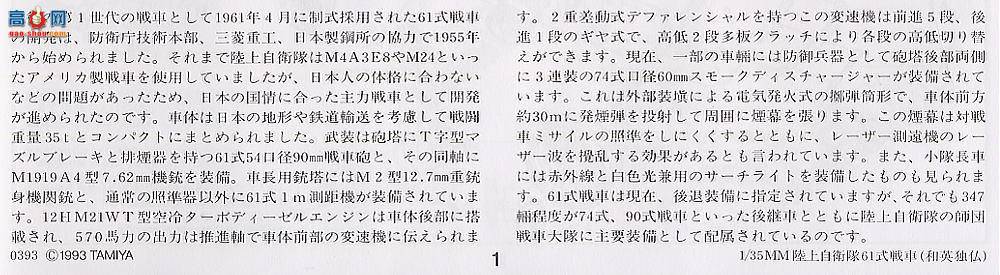 高网
gao-shou.com
第1世代の戦車として1961年4月に制式採用された61式戦車
の開発は、防衛庁技術本部、三菱重工、日本製鋼所の協力で1955年
から始められました。それまで陸上自衛隊はM4A3E8やM24といっ
たアメリカ製戦車を使用していましたが、日本人の体格に合わない
などの問題があったため、日本の国情に合った主力戦車として開発
が進められたのです。車体は日本の地形や鉄道輸送を考慮して戦闘
重量35tとコンパクトにまとめられました。武装は砲塔にT字型マ
ズルブレーキと排煙器を持つ61式54口径90mm戦車砲と、その同軸に
M1919A4型7.62mm機銃を装備。車長用銃塔にはM2型12.7mm重銃
身機関銃と、通常の照準器以外に61式1m測距機が装備されていま
す。12HM21WT型空冷ターボディーゼルエンジンは車体後部に搭
載され、570馬力の出力は推進軸で車体前部の変速機に伝えられま
す。2重差動式デファレンシャルを持つこの変速機は前進5段、後
進1段のギヤ式で、高低2段多板クラッチにより各段の高低切り替
えができます。現在、一部の車輛には防御兵器として砲塔後部両側
に3連装の74式口径60mmスモークディスチャージャーが装備されて
います。これは外部装塡による電気発火式の擲弾筒形で、車体前方
約30mに発煙弾を投射して周囲に煙幕を張ります。この煙幕は対戦
車ミサイルの照準をしにくくするとともに、レーザー測遠機のレー
ザー波を攪乱する効果があるとも言われています。また、小隊長車
には赤外線と白色光兼用のサーチライトを装備したものも見られま
す。61式戦車は現在、後退装備に指定されていますが、それでも347
輛程度が74式、90式戦車といった後継車とともに陸上自衛隊の師団
戦車大隊に主要装備として配属されているのです。
0393 ©1993 TAMIYA
1
1/35MM陸上自衛隊61式戦車(和英独仏)